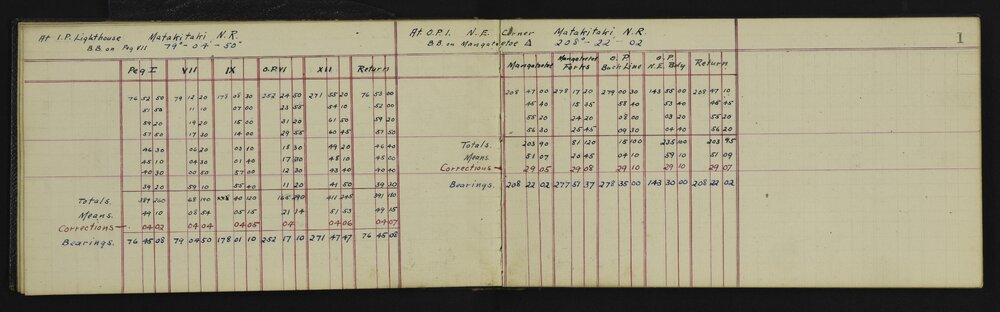 At I.P. Lighthouse Matakitaki N.R.
B.B. on Peg VII 79°-04'-50"
Peg I VII IX O.P.VI XII Return
76 52 50 79 12 20 178 08 30 252 24 50 271 55 20 76 53 00
51 50 11 10 07 00 23 55 54 10 52 00
59 20 19 20 15 00 31 20 61 50 59 20
57 50 17 30 14 00 29 55 60 45 57 50
46 30 06 20 03 10 18 30 49 20 46 40
45 10 04 30 01 40 17 30 48 10 45 00
40 30 00 50 57 00 12 30 43 40 40 40
39 20 59 10 55 40 11 20 41 50 39 30
Totals. 389 260 68 190 40 120 165 290 411 245 391 180
Means. 49 10 08 54 05 15 21 14 51 53 49 15
Corrections 04 02 04 04 04 05 04 04 06 04 07
Bearings. 76 45 08 79 04 50 178 01 10 252 17 10 271 47 47 76 45 08
At O.P.I. N.E. Corner Matakitaki N.R.
B.B. on Mangatoetoe Δ 208°-22'-02
1
Mangatoetoe Mangatoetoe Forks O.P. Back Line O.P. N.E. Bdy Return
208 47 00 278 17 20 279 00 30 143 55 00 208 47 10
45 40 15 35 58 40 53 40 45 45
55 20 24 20 08 00 03 20 55 20
56 30 25 45 09 30 04 40 56 20
Totals. 203 90 81 120 15 100 235 100 203 95
Means. 51 07 20 45 04 10 59 10 51 09
Corrections 29 05 29 08 29 10 29 10 29 07
Bearings. 208 22 02 277 51 37 278 35 00 143 30 00 208 22 02